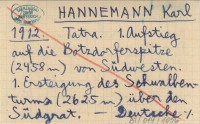 HANNEMANN Karl
1912. Tatra. 1. Aufstieg
auf die Botzdorferspitze
(2458 m) von Südwesten.
1. Ersteigung des Schwalben-
turms (2625 m) über den
Südgrat. — Deutsche %